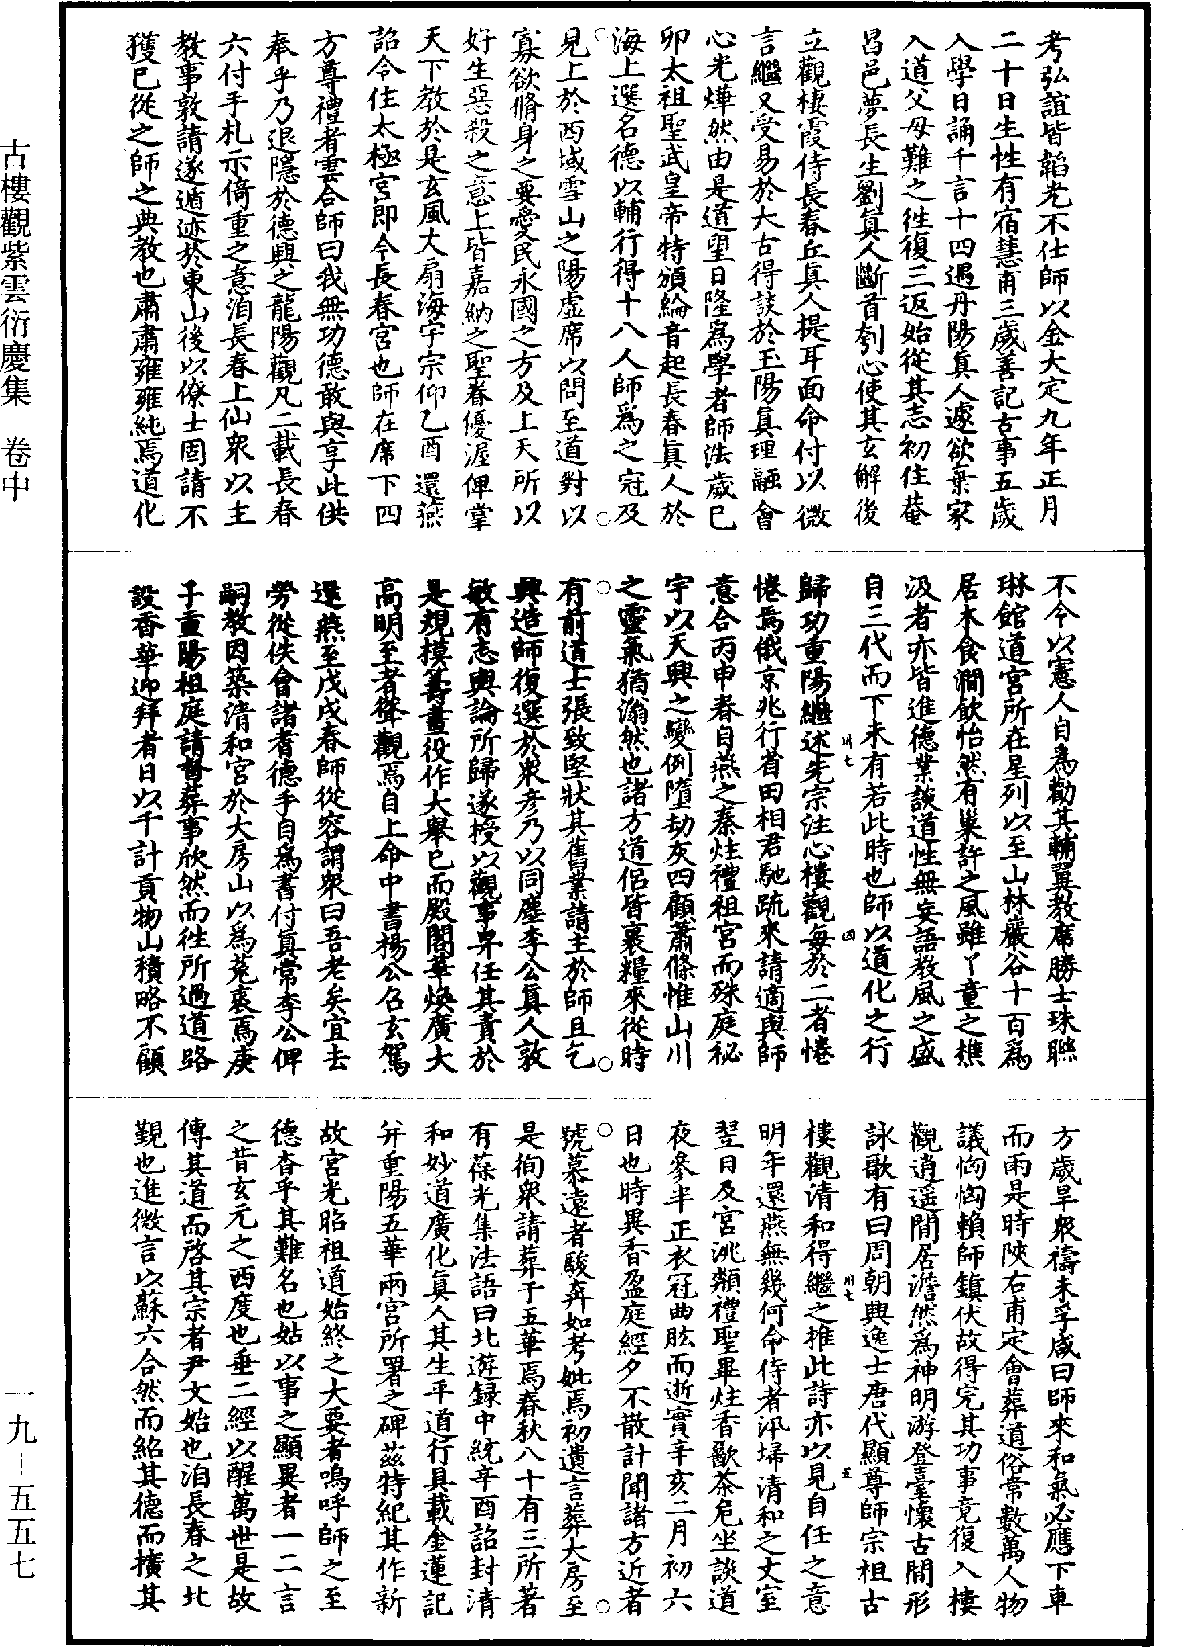 古樓觀紫雲衍慶集　卷中
考弘誼皆韜光不仕師以金大定九年正月
二十日生性有宿慧甫三歲善記古事五歲
入學日誦千言十四遇丹陽真人遽欲棄家
入道父母難之徃復三返始從其志初住菴
昌邑夢長生劉真人斷首刳心使其玄解後
立觀棲霞侍長春丘真人提耳面命付以微
言繼又受易於大古得談於玉陽真理融會
心光燁然由是道望日隆爲學者師法歲已
卯太祖聖武皇帝特頒綸音起長春真人於
海上選名德以輔行得十八人師爲之冠及
見上於西域雪山之陽虛席以問至道對以
寡欲脩身之要愛民永國之方及上天所以
好生惡殺之意上皆嘉納之聖眷優渥俾掌
天下教於是玄風大扇海宇宗仰乙酉還燕
詔令住太極宮即今長春宮也師在席下四
方尊禮者雲合師曰我無功德敢與享此供
奉乎乃退隱於德興之龍陽觀凡二載長春
六付手札示倚重之意洎長春上仙衆以主
教事敦請遂遁迹於東山後以僚士固請不
獲已從之師之典教也肅肅雍雍純焉道化
不令以憲人自爲勸其輔翼教席勝士珠聯
琳館道宮所在星列以至山林巖谷十百爲
居木食澗飲怡然有巢許之風雖丫童之樵
汲者亦皆進德業談道性無妄語教風之盛
自三代而下未有若此時也師以道化之行
歸功重陽繼述先宗注心樓觀每於二者惓
惓焉俄京兆行省田相君馳疏來請適與師
意合丙申春自燕之秦炷禮祖宮而殊庭秘
宇以天興之變例墮劫灰四顧蕭條惟山川
之靈氣猶滃然也諸方道侶皆裹糧來從時
有前道士張致堅狀其舊業請主於師且乞
興造師復選於衆彥乃以同塵李公真人敦
敏有志輿論所歸遂授以觀事畀任其責於
是規模籌畫役作大舉已而殿閣華煥廣大
高明至者聳觀焉自上命中書楊公召玄駕
還燕至戊戌春師從容謂衆曰吾老矣宜去
勞從佚會諸耆德手自爲書付真常李公俾
嗣教因築清和宮於大房山以爲菟裘焉庚
子重陽祖庭請督葬事欣然而徃所過道路
設香華迎拜者日以千計貢物山積略不顧
方歲旱衆禱未孚咸曰師來和氣必應下車
而雨是時陝右甫定會葬道俗常數萬人物
議恟恟賴師鎮伏故得完其功事竟復入樓
觀逍遙閒居澹然爲神明游登臺懷古閒形
詠歌有曰周朝興逸士唐代顯尊師宗祖古
樓觀清和得繼之推此詩亦以見自任之意
明年還燕無幾何命侍者汛埽清和之丈室
翌日及宮洮頮禮聖畢炷香歠茶危坐談道
夜參半正衣冠曲肱而逝實辛亥二月初六
日也時異香盈庭經夕不散訃聞諸方近者
號慕遠者駿奔如考妣焉初遺言葬大房至
是徇衆請葬于五華焉春秋八十有三所著
有葆光集法語曰北遊録中統辛酉詔封清
和妙道廣化真人其生平道行具載金蓮記
并重陽五華兩宮所署之碑茲特紀其作新
故宮光昭祖道始終之大要者嗚呼師之至
德杳乎其難名也姑以事之顯異者一二言
之昔玄元之西度也垂二經以醒萬世是故
傳其道而啓其宗者尹文始也洎長春之北
覲也進微言以蘇六合然而紹其德而擴其
一九-五五七